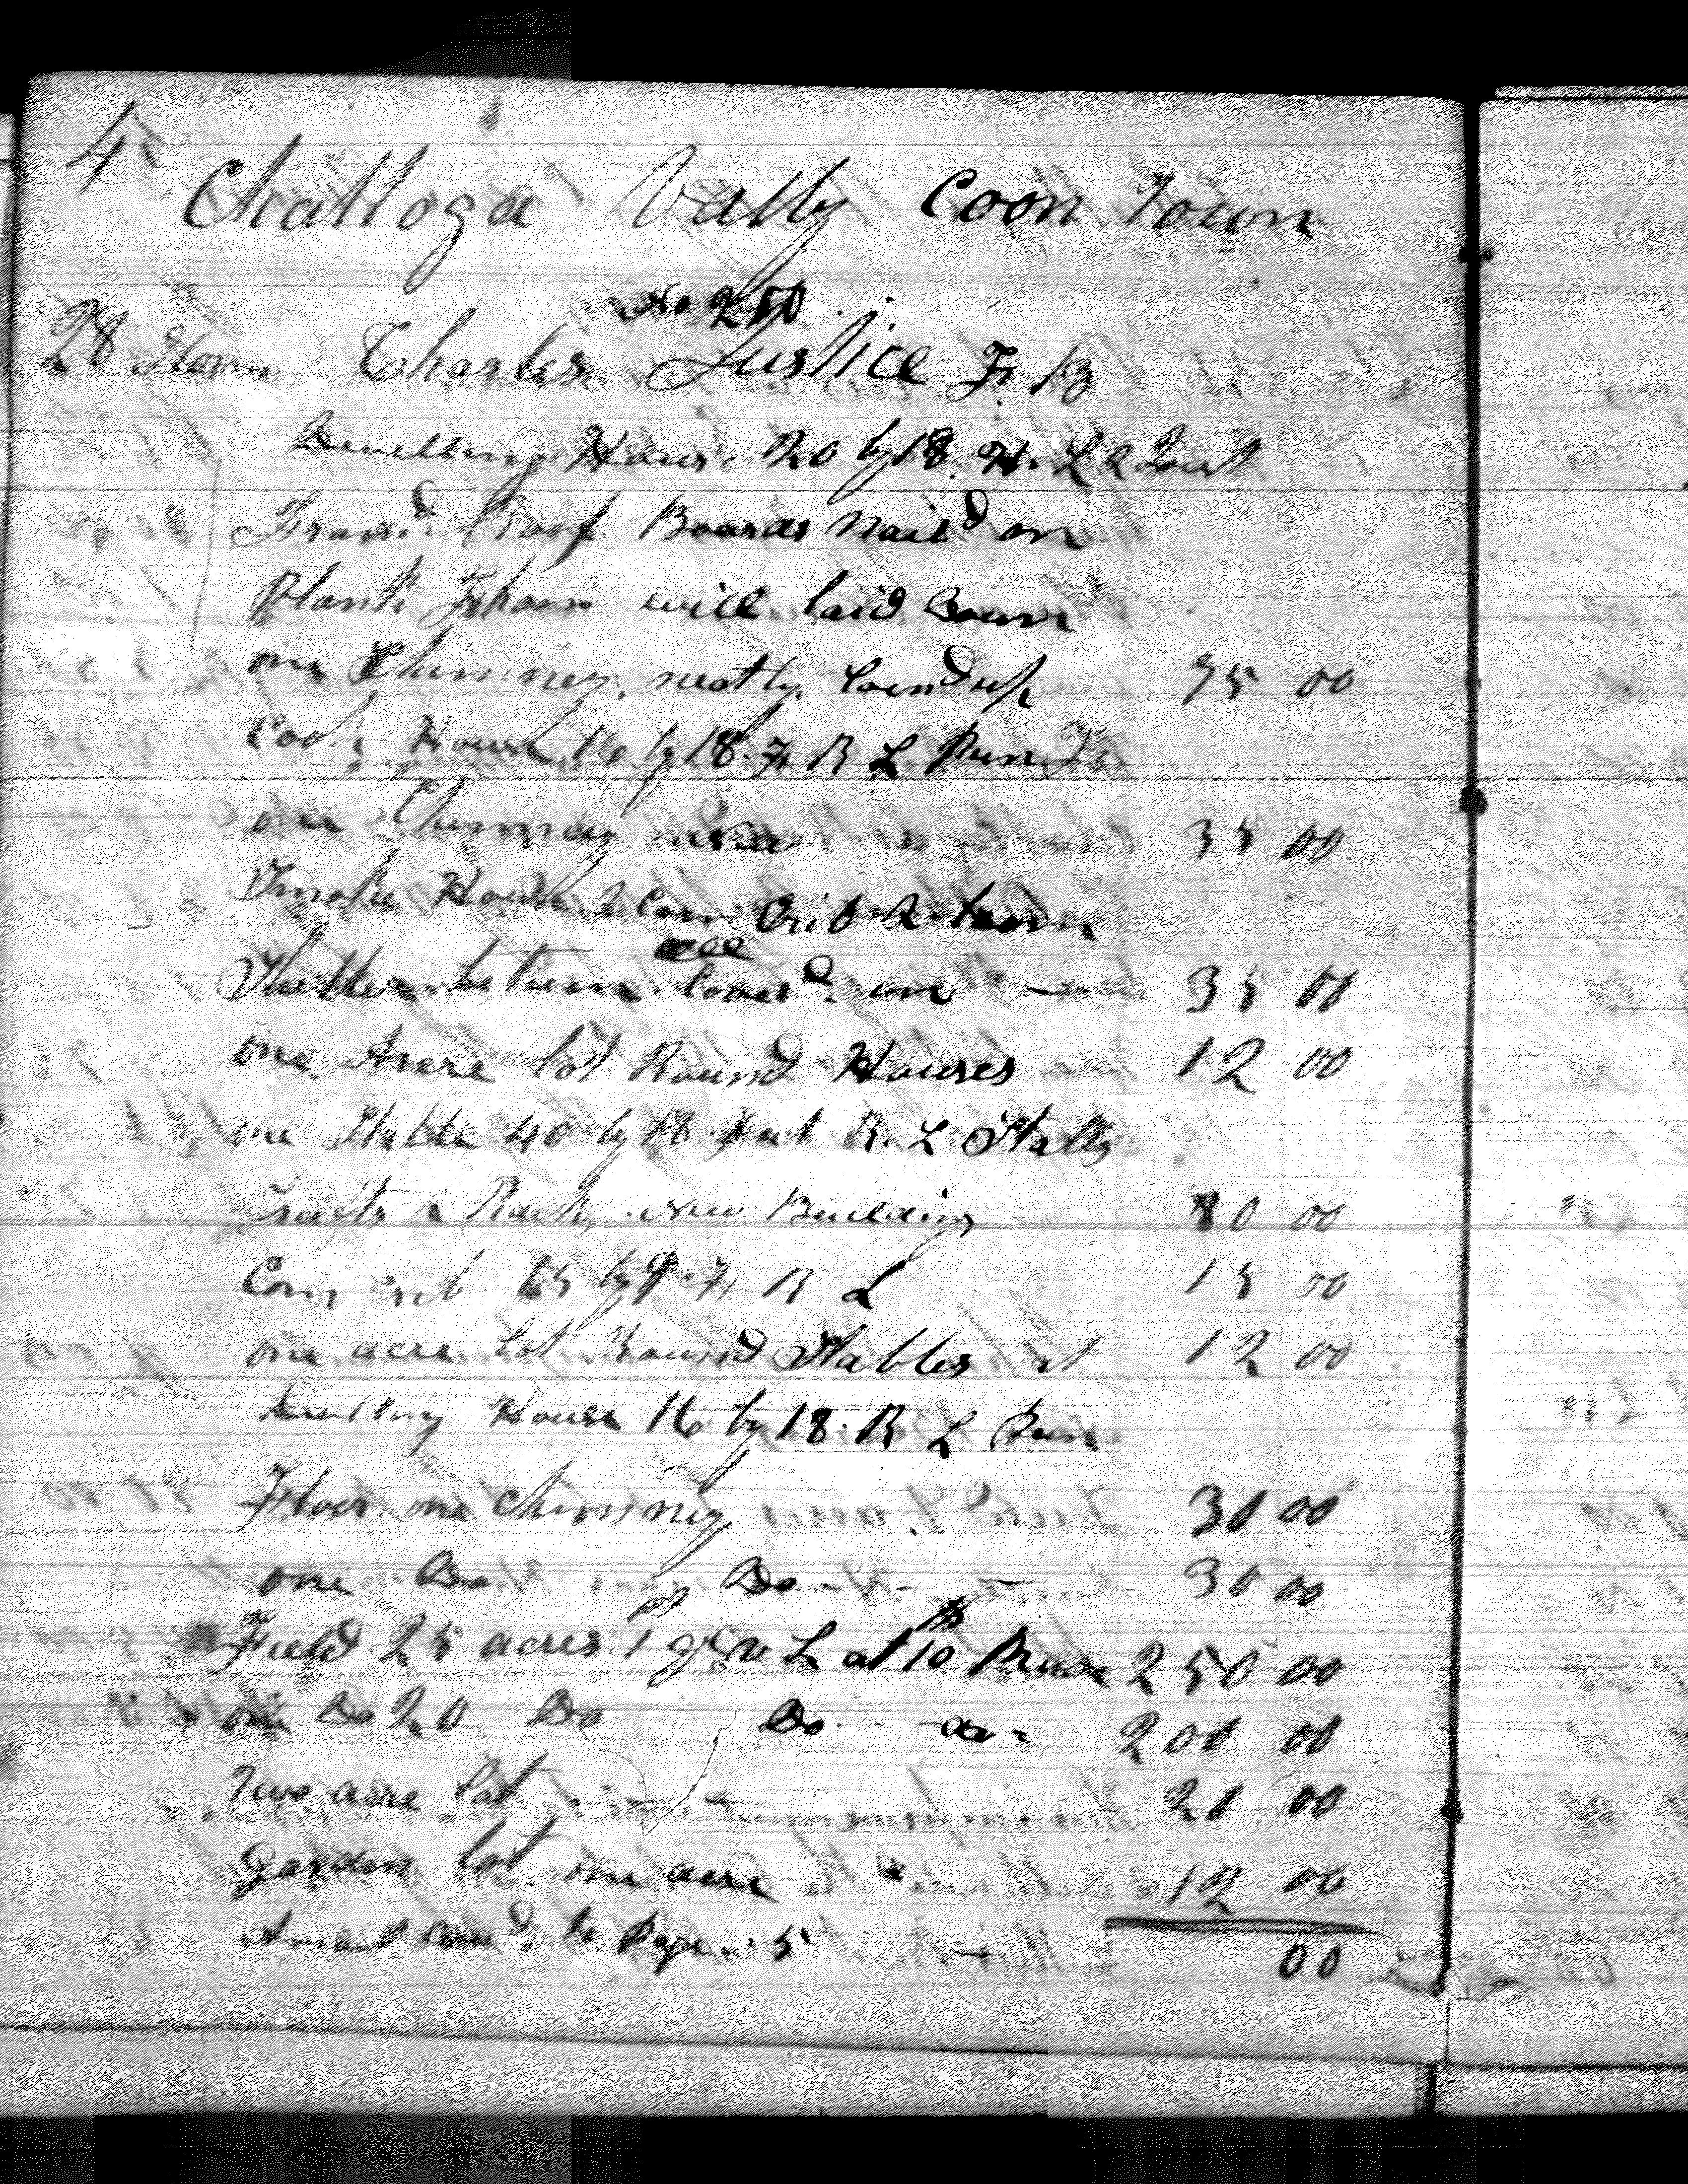 4
Chattoga Vally Coon Town
No 210
28 Charles Justice F. B
Dwelling House 20 by 18. H. L & Joist
Framd. Roof Boards Naild on
Plank Floors will laid down
one Chimney, neatly Coverd up 75 00
Cook House 16 by 18. F R L Pun F
one Chimney New 35 00
Smoke House & Corn Crib &
Shelter between all Coverd. in — 35 00
one Acere lot Round Houses 12 00
one Stable 40 by 18 feet R. L Stalls
& Racks, New Building 80 00
Corn crib 15 by 9. F R L 15 00
one acre lot Round Stables at 12 00
Dwelling House 16 by 18. R L Pun
Floor one Chimney 30 00
one Do Do - - 30 00
Field 25 acres 1st v L at $10 250 00
one Do 20 Do Do - do = 200 00
Two acre lot 20 00
Garden lot one acre 12 00
Amount carrd. to Page. 5 — 00